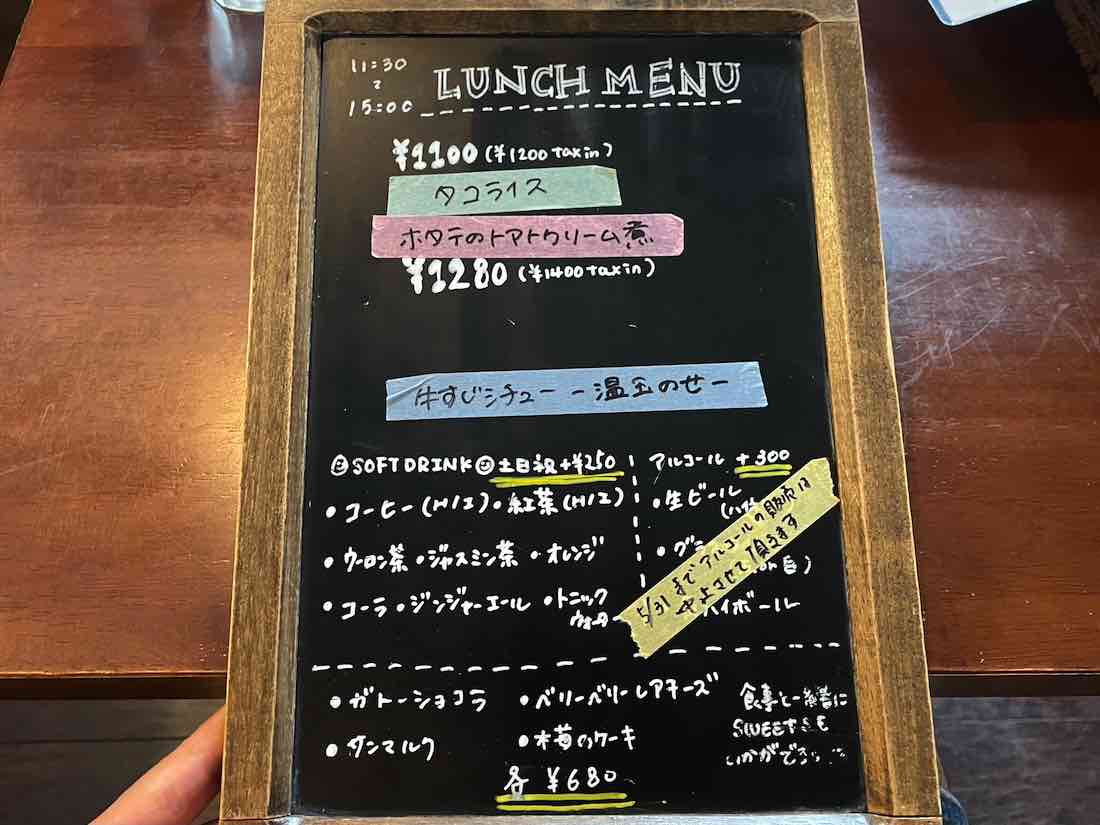 11:30
〜
15:00
LUNCH MENU
¥1100 (¥1200 tax in)
タコライス
ホタテのトマトクリーム煮
¥1280 (¥1400 tax in)
牛すじシチュー ー温玉のせー
SOFT DRINK 土日祝+¥250
・コーヒー(H/I)・紅茶(H/I)
・ウーロン茶・ジャスミン茶・オレンジ
・コーラ・ジンジャーエール・トニック
ウォーター
アルコール +300
・生ビール
・グラ
ハイボール
5/31までアルコールの販売は
中止させて頂きます
・ガトーショコラ ・ベリーベリーレアチーズ
・ダンマルク ・木苺のケーキ
各 ¥680
食事と一緒に
SWEETSも
いかがでしょ